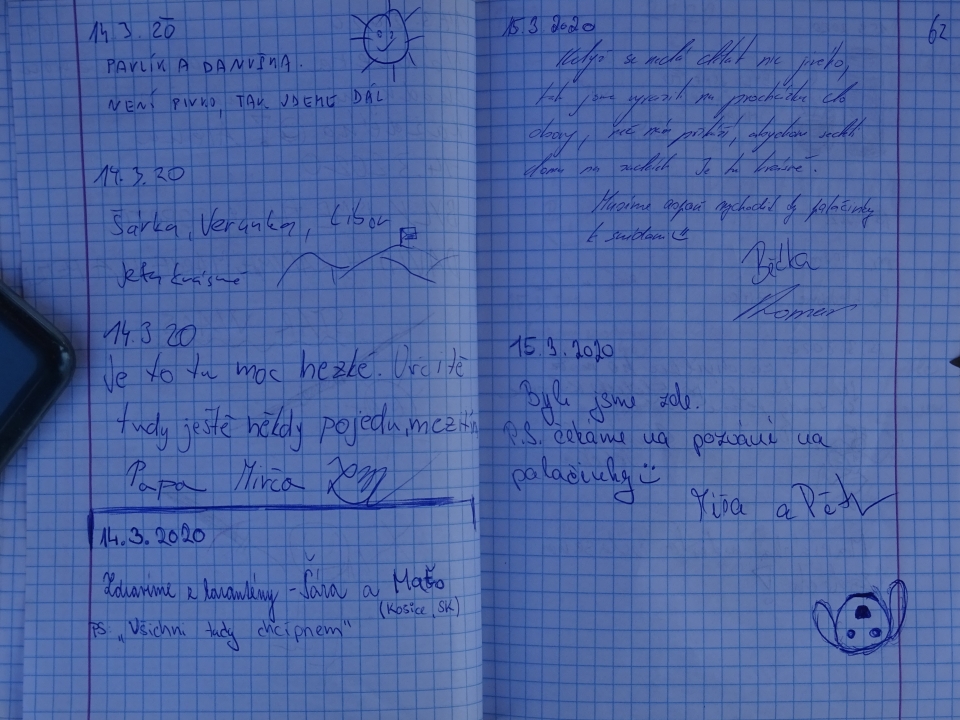 14.3.20
PAVLÍK A DANUŠKA.
NENÍ PIVKO, TAK JDEME DÁL
14.3.20
Šárka, Verunka, Libor
Je tu krásně
14.3 20
Je to tu moc hezké. Určitě
tudy ještě někdy pojedu, mezitím
Papa Mirča
14.3.2020
Zdravíme z karantény - Sára a Maťo
(Košice, SK)
PS: „Všichni tady chcípnem"
62
15.3 2020
Když se nedá dělat nic jiného,
tak jsme vyrazili na procházku do
obory, než nám přikáží, abychom seděli
doma na zadcích. Je tu krásně.
Musíme aspoň vychodit ty palačinky
k snídani
Běťka
15.3.2020
Byli jsme zde.
P.S. čekáme na pozvání na
palačinky
Míša a Péťa